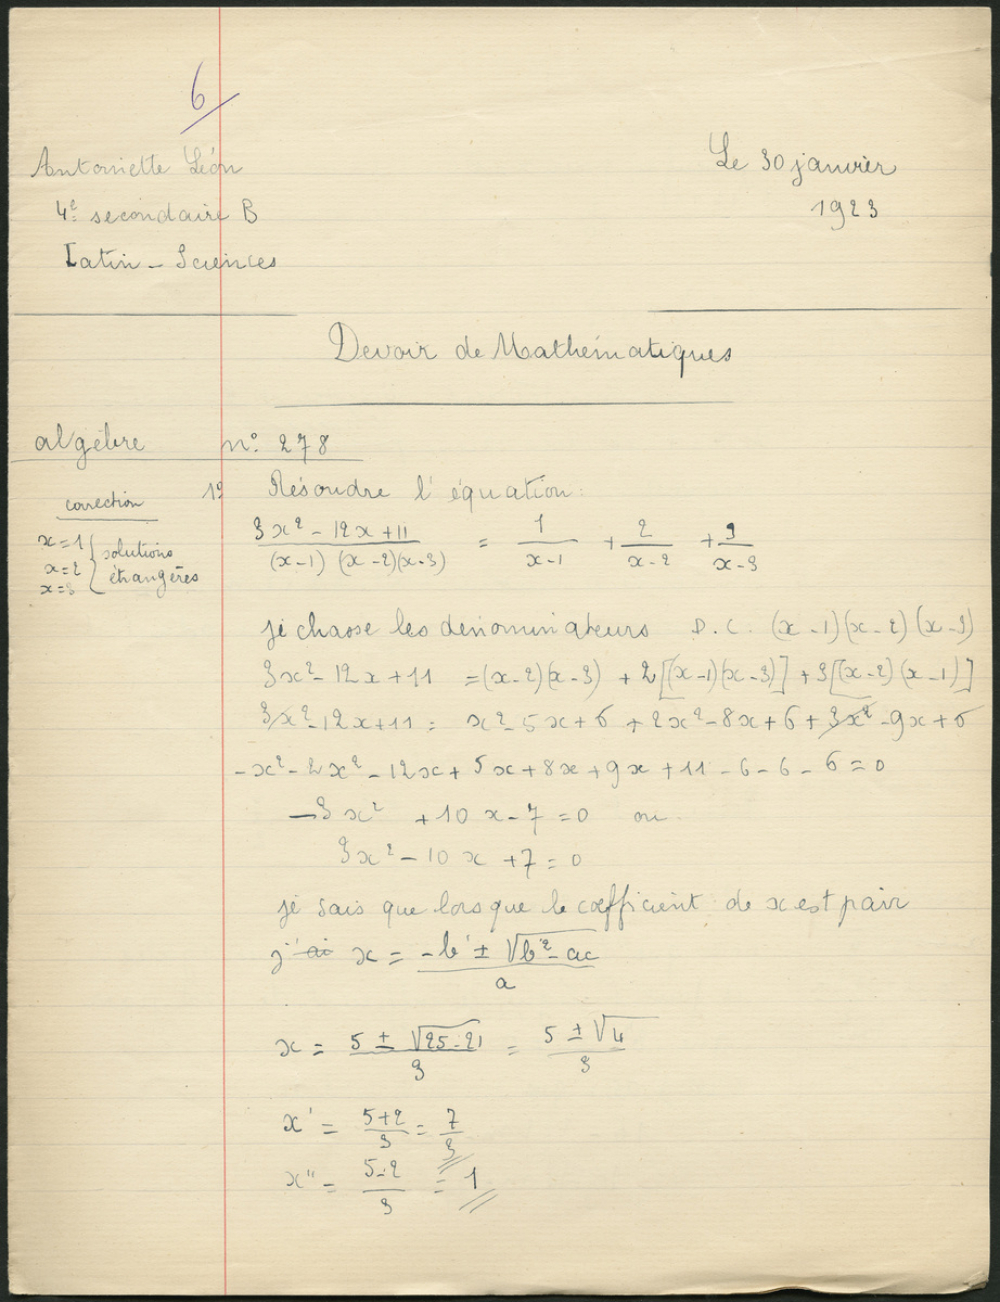 6
Antoniette Léon
Le 30 janvier
4e secondaire B
1923
Latin - Sciences
Devoir de Mathématiques
algèbre n° 278
1° Résoudre l'équation:
correction
x=1
x=2
x=3
solutions
étrangères
(3x² - 12x + 11) / ((x-1) (x-2)(x-3)) = 1/(x-1) + 2/(x-2) + 3/(x-3)
je chasse les dénominateurs D.C. (x-1)(x-2)(x-3)
3x² - 12x + 11 = (x-2)(x-3) + 2[(x-1)(x-3)] + 3[(x-2)(x-1)]
3x² - 12x + 11 = x² - 5x + 6 + 2x² - 8x + 6 + 3x² - 9x + 6
-x² - 2x² - 12x + 5x + 8x + 9x + 11 - 6 - 6 - 6 = 0
-3x² + 10x - 7 = 0 ou
3x² - 10x + 7 = 0
je sais que lorsque le coefficient de x est pair
j'ai x = (-b' ± √(b'² - ac)) / a
x = (5 ± √(25-21)) / 3 = (5 ± √4) / 3
x' = (5+2)/3 = 7/3
x" = (5-2)/3 = 1